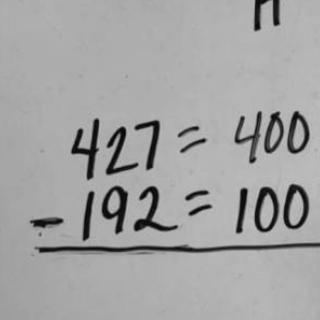 427 = 400
- 192 = 100